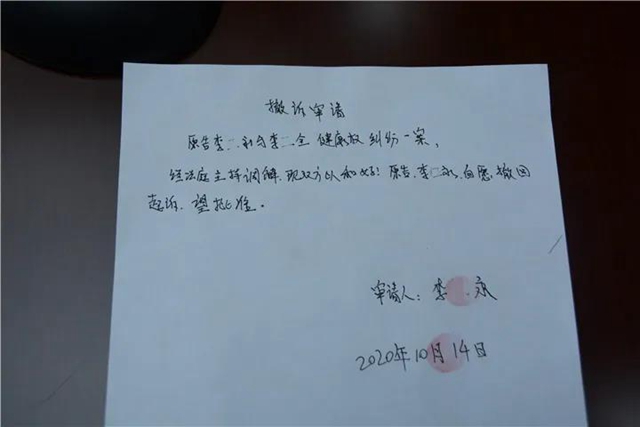 撤诉申请
原告李二永与李二全健康权纠纷一案,
经法庭主持调解,现双方以和好!原告李二永,自愿撤回
起诉,望批准。
申请人:李 永
2020年10月14日